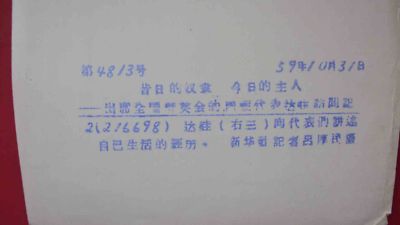 第4813号 59年10月31日
昔日的奴隶 今日的主人
——出席全國群英会的西藏代表达娃訪問記
2(216698) 达娃(右三)向代表們講述
自己生活的經历。 新华社記者呂厚民攝